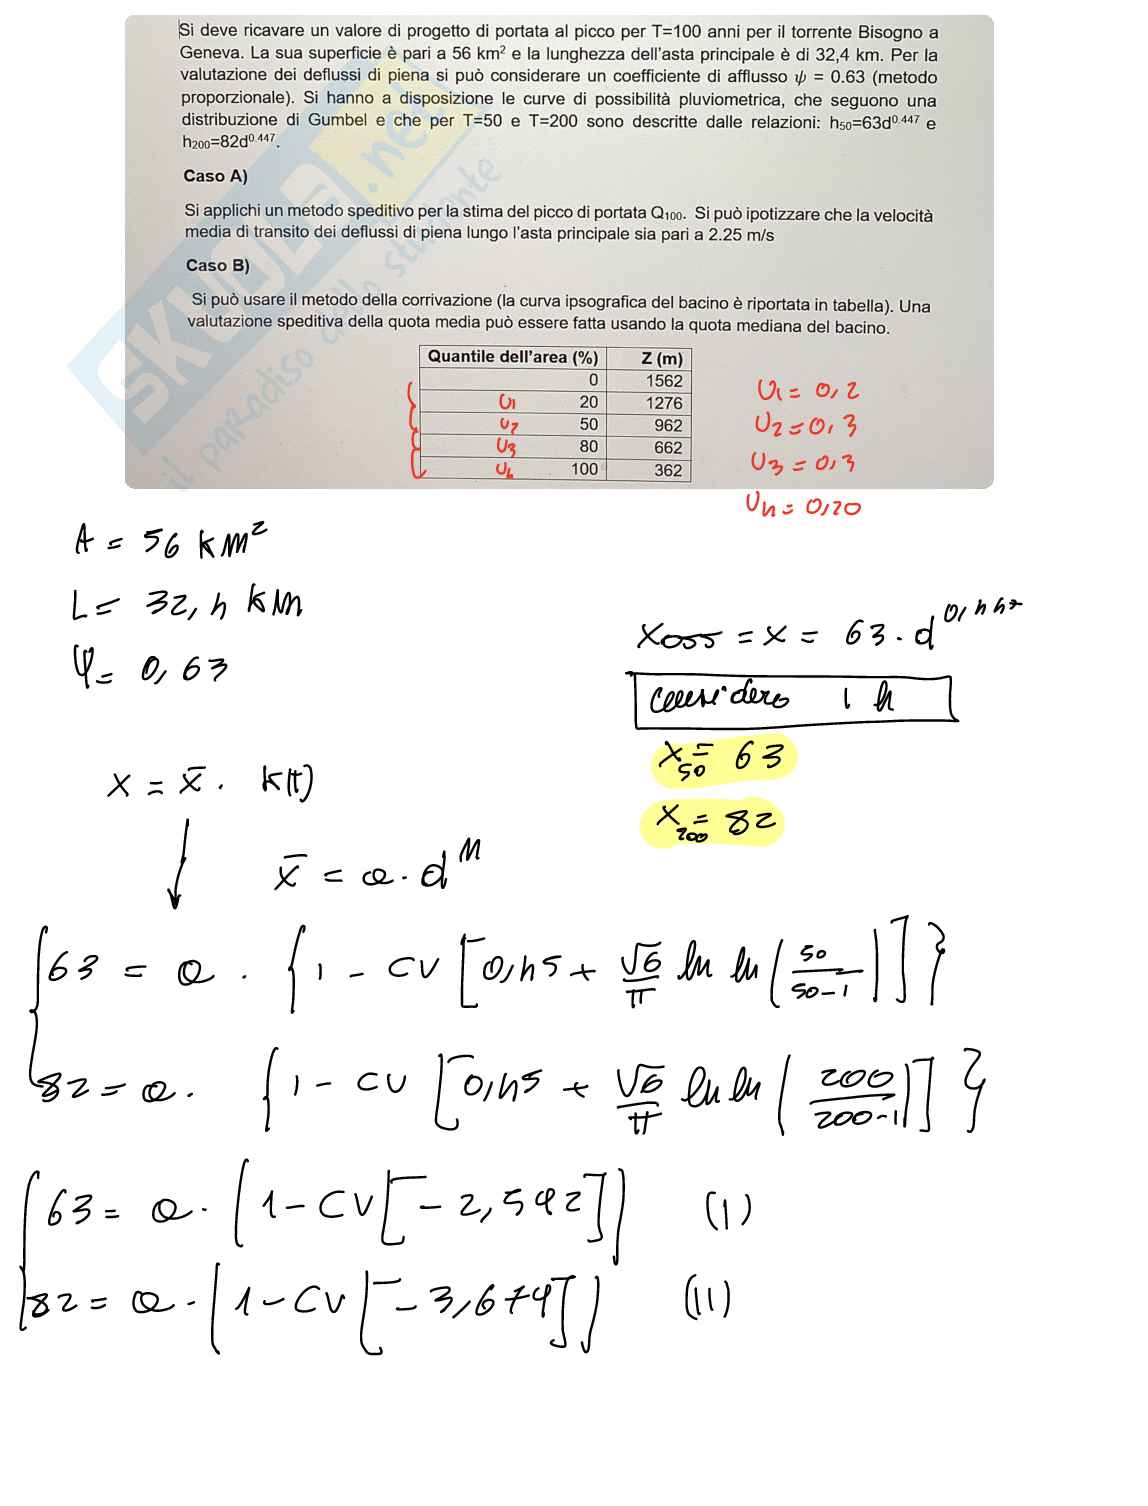 Si deve ricavare un valore di progetto di portata al picco per T=100 anni per il torrente Bisogno a
Geneva. La sua superficie è pari a 56 km² e la lunghezza dell'asta principale è di 32,4 km. Per la
valutazione dei deflussi di piena si può considerare un coefficiente di afflusso ψ = 0.63 (metodo
proporzionale). Si hanno a disposizione le curve di possibilità pluviometrica, che seguono una
distribuzione di Gumbel e che per T=50 e T=200 sono descritte dalle relazioni: h50=63d^0.447 e
h200=82d^0.447.
Caso A)
Si applichi un metodo speditivo per la stima del picco di portata Q100. Si può ipotizzare che la velocità
media di transito dei deflussi di piena lungo l'asta principale sia pari a 2.25 m/s
Caso B)
Si può usare il metodo della corrivazione (la curva ipsografica del bacino è riportata in tabella). Una
valutazione speditiva della quota media può essere fatta usando la quota mediana del bacino.
Quantile dell'area (%) Z (m)
0 1562
U1 20 1276
U2 50 962
U3 80 662
U4 100 362
U1 = 0,2
U2 = 0,3
U3 = 0,3
U4 = 0,20
SKUOLA.net
il paradiso dello studente
A = 56 km²
L = 32,4 km
φ = 0,63
xoss = x = 63 · d^0,447
considero 1 h
x50 = 63
x200 = 82
x = x̄ · k(t)
x̄ = a · d^M
63 = a · {1 - CV [0,45 + √6/π ln ln (50/(50-1))]}
82 = a · {1 - CV [0,45 + √6/π ln ln (200/(200-1))]}
63 = a · (1 - CV [-2,592]) (I)
82 = a · (1 - CV [-3,679]) (II)